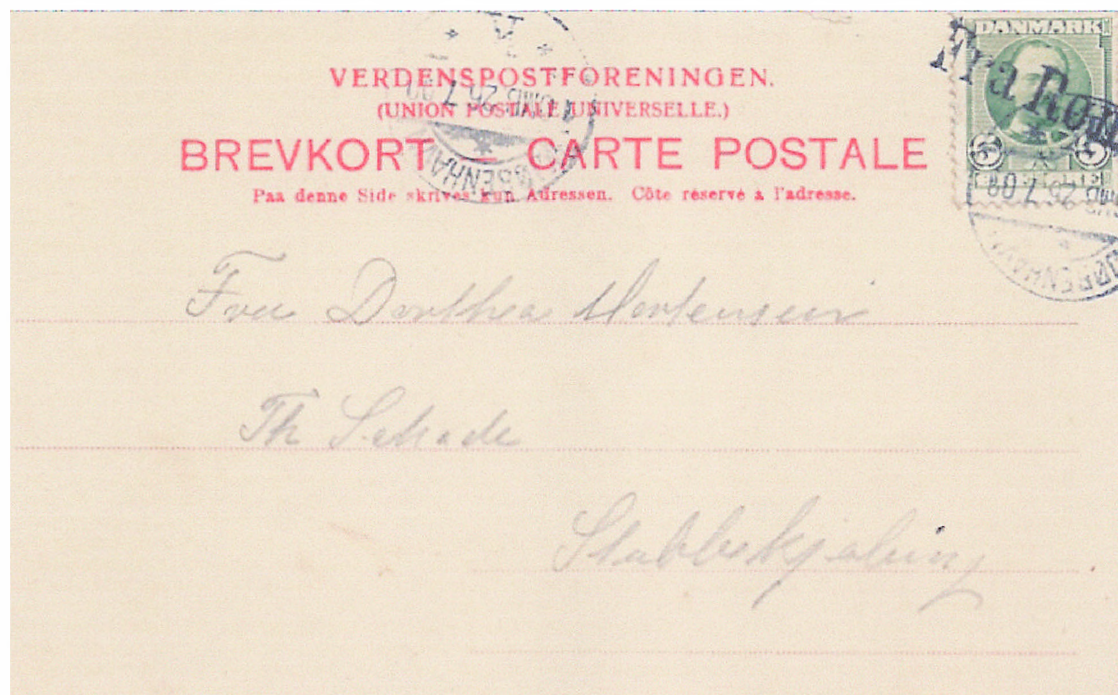 DANMARK
Fra
5 5
VERDENSPOSTFORENINGEN.
(UNION POSTALE UNIVERSELLE.)
BREVKORT — CARTE POSTALE
Paa denne Side skrives kun Adressen. Côte réservé a l'adresse.
KJØBENHAVN
OMB. 25 7 08
Fru Dorthea Mortensen
Th Schade
Stubbekjøbing